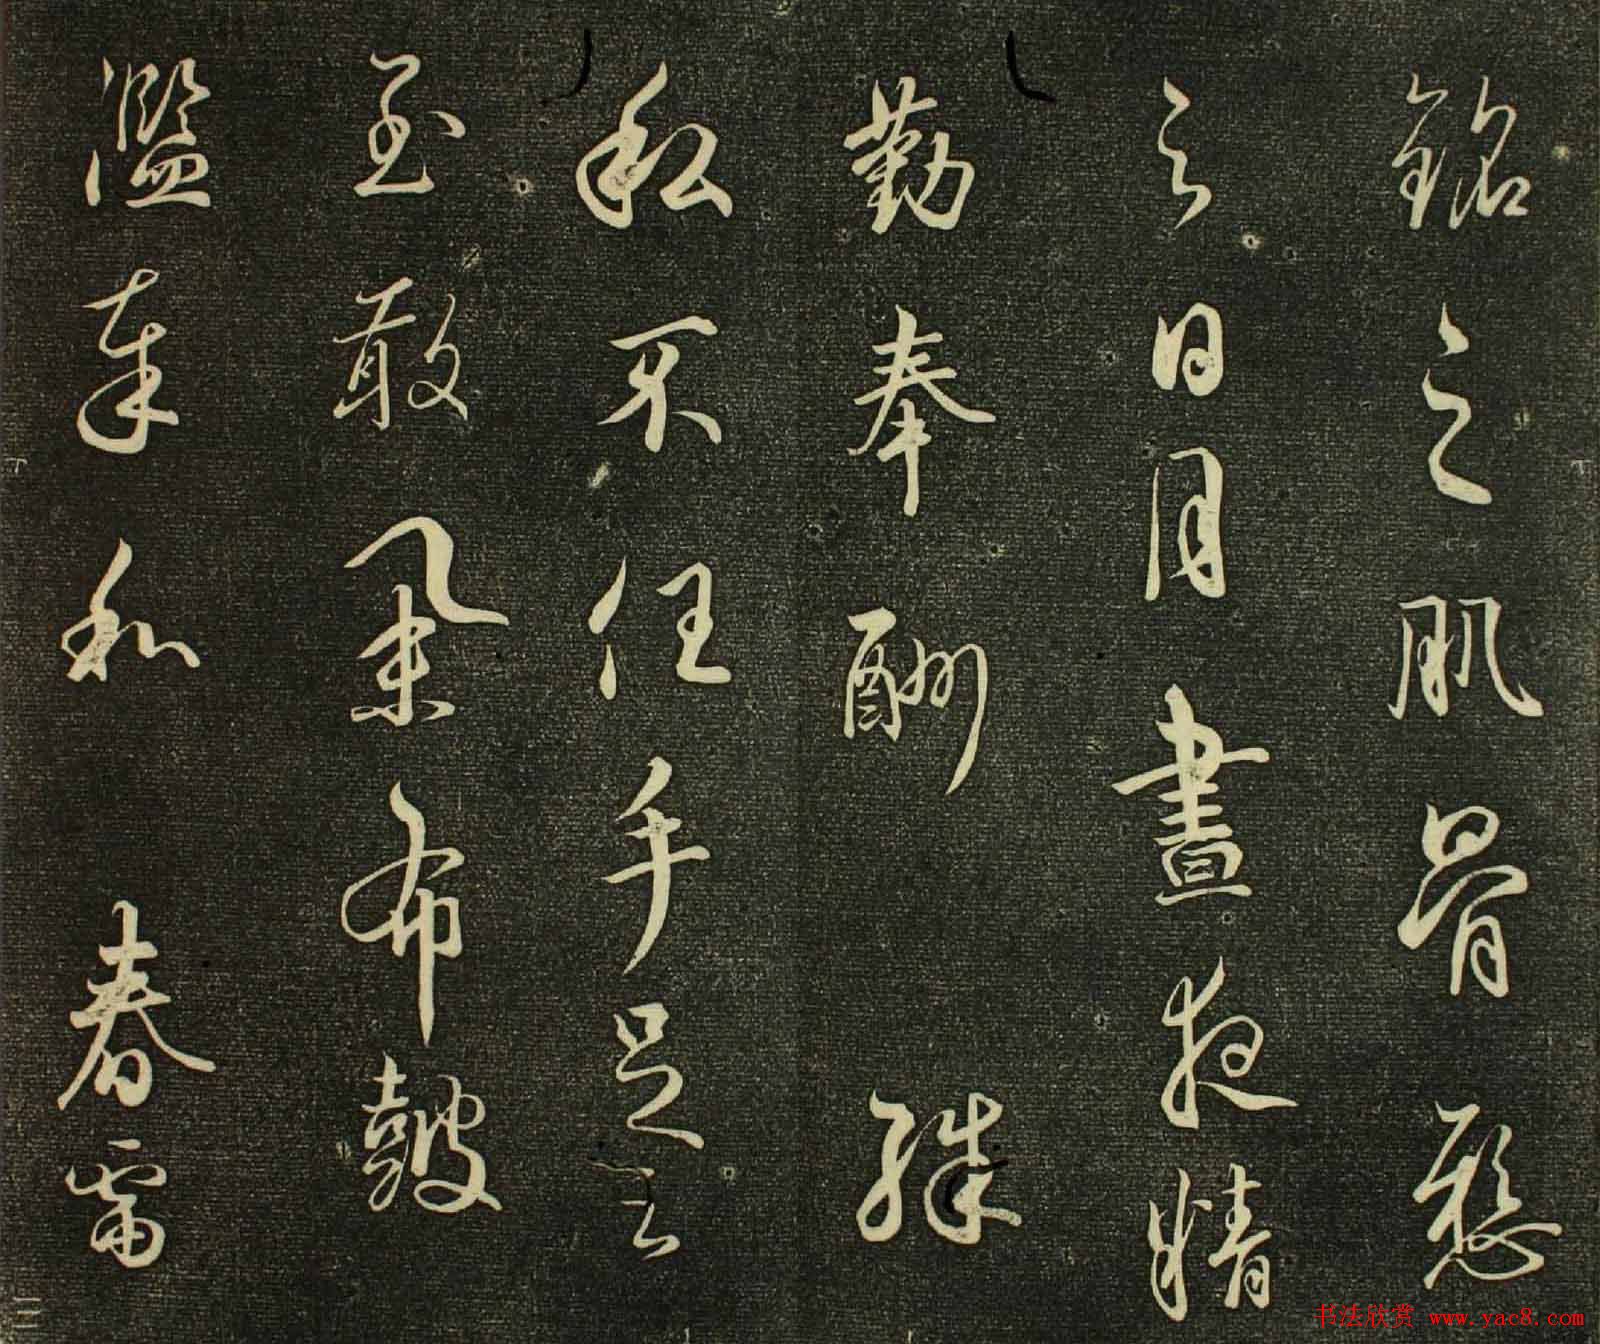 銘之肌骨懸
之日月晝夜精
勤奉酬殊
私不任手足之
至敢布皷
濫奉和春雷
书法欣赏 www.yac8.com